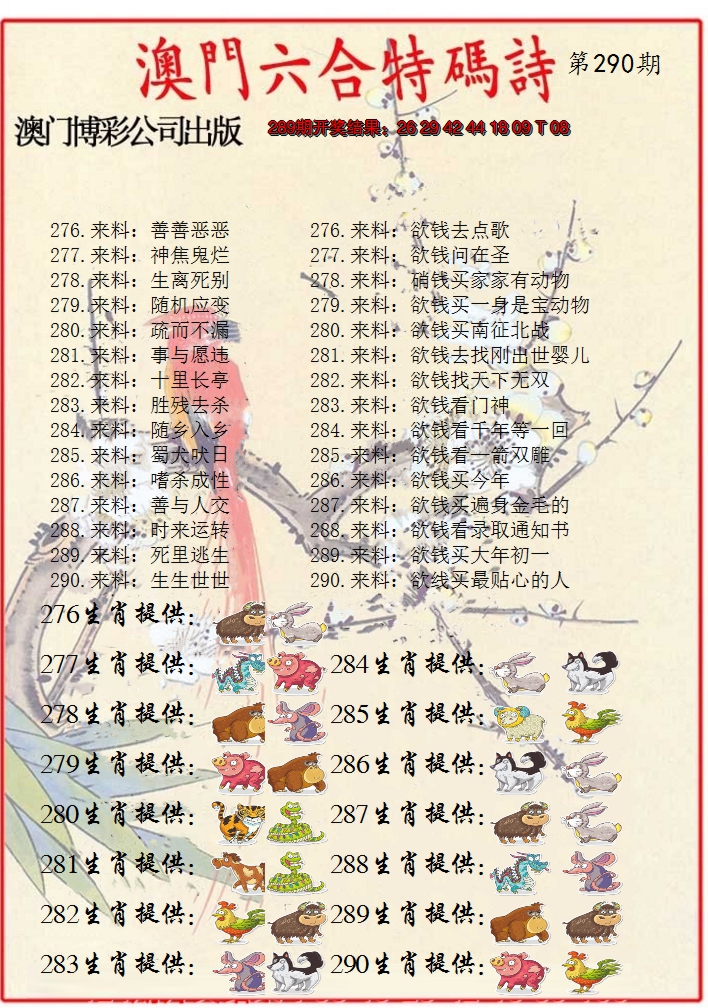 澳門六合特碼詩 第290期
澳门博彩公司出版 289期开奖结果：26 29 42 44 18 09 T 08
276.来料：善善恶恶 276.来料：欲钱去点歌
277.来料：神焦鬼烂 277.来料：欲钱问在圣
278.来料：生离死别 278.来料：硝钱买家家有动物
279.来料：随机应变 279.来料：欲钱买一身是宝动物
280.来料：疏而不漏 280.来料：欲钱买南征北战
281.来料：事与愿违 281.来料：欲钱去找刚出世婴儿
282.来料：十里长亭 282.来料：欲钱找天下无双
283.来料：胜残去杀 283.来料：欲钱看门神
284.来料：随乡入乡 284.来料：欲钱看千年等一回
285.来料：蜀犬吠日 285.来料：欲钱看一箭双雕
286.来料：嗜杀成性 286.来料：欲钱买今年
287.来料：善与人交 287.来料：欲钱买遍身金毛的
288.来料：时来运转 288.来料：欲钱看录取通知书
289.来料：死里逃生 289.来料：欲钱买大年初一
290.来料：生生世世 290.来料：欲线买最贴心的人
276生肖提供：
277生肖提供： 284生肖提供：
278生肖提供： 285生肖提供：
279生肖提供： 286生肖提供：
280生肖提供： 287生肖提供：
281生肖提供： 288生肖提供：
282生肖提供： 289生肖提供：
283生肖提供： 290生肖提供：